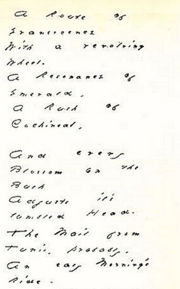 A Route of
Evanescence
With a revolving
Wheel.
A Resonance of
Emerald.
A Rush of
Cochineal.
And every
Blossom on the
Bush
Adjusts its
tumbled Head.
The Mail from
Tunis, probably,
An easy Morning's
Ride.